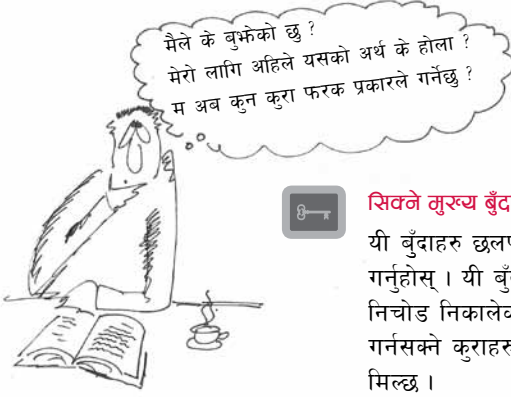 मैले के बुझेको छु ?
मेरो लागि अहिले यसको अर्थ के होला ?
म अब कुन कुरा फरक प्रकारले गर्नेछु ?
सिक्ने मुख्य बुँदा
यी बुँदाहरु
गर्नुहोस् । यी
निचोड
गर्नसक्ने कुराहरु
मिल्छ ।